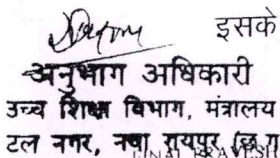 इसके
अनुभाग अधिकारी
उच्च शिक्षा विभाग, मंत्रालय
टल नगर, नवा रायपुर